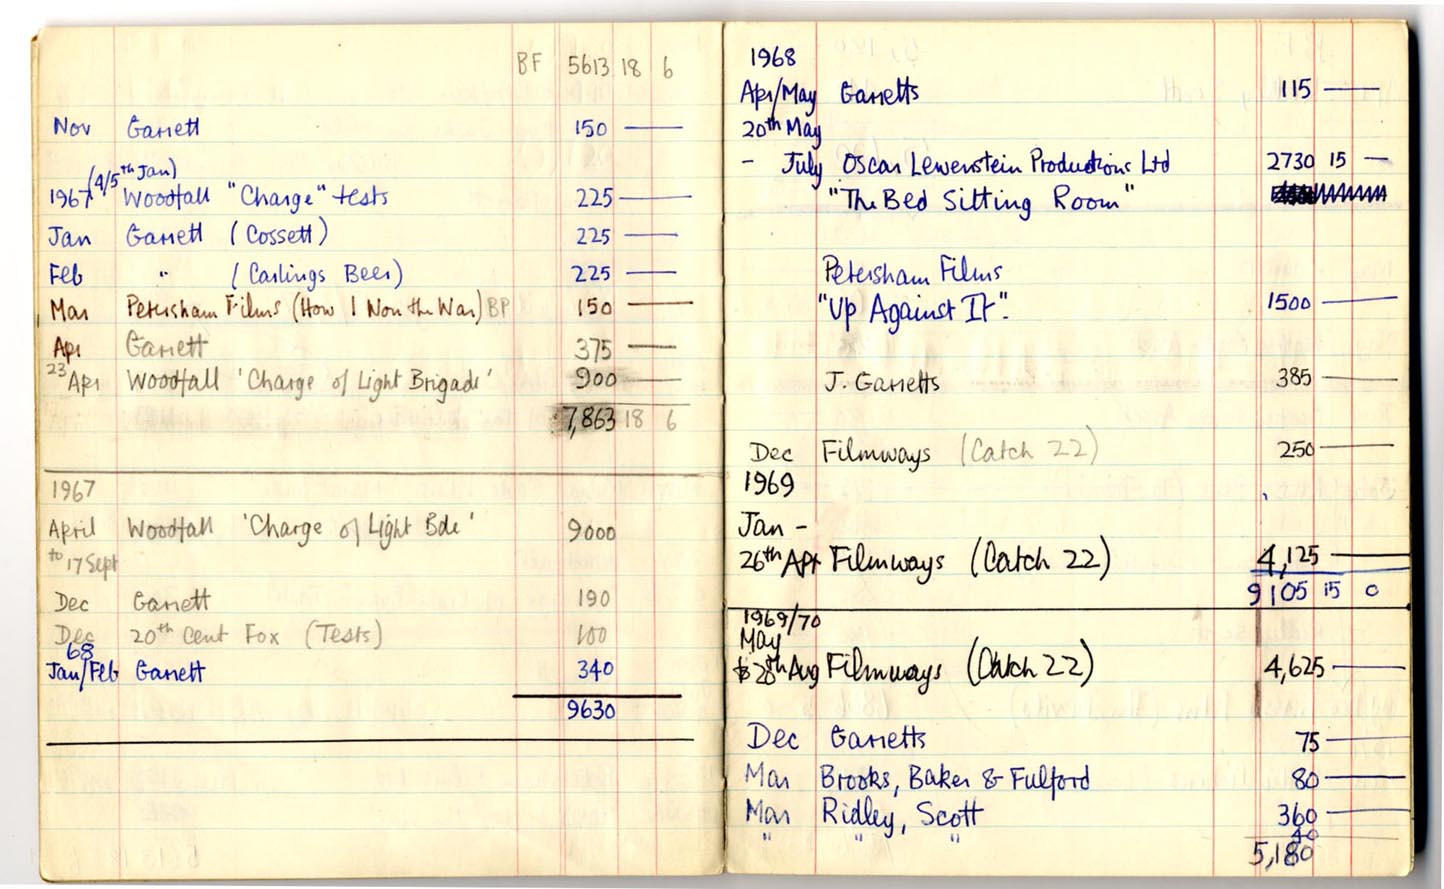 BF 5613 18 6
Nov Garrett 150 —
(4/5th Jan)
1967 Woodfall "Charge" tests 225 —
Jan Garrett (Cossett) 225 —
Feb " (Carlings Beer) 225 —
Mar Petersham Films (How I Won the War) BP 150 —
Apr Garrett 375 —
23 Apr Woodfall 'Charge of Light Brigade' 900 —
7,863 18 6
1967
April Woodfall 'Charge of Light Bde' 9000
to 17 Sept
Dec Garrett 190
Dec 20th Cent Fox (Tests) 100
68
Jan/Feb Garrett 340
9630
1968
Apr/May Garretts 115 —
20th May
- July Oscar Lewenstein Productions Ltd 2730 15 —
"The Bed Sitting Room"
Petersham Films
"Up Against It". 1500 —
J. Garretts 385 —
Dec Filmways (Catch 22) 250 —
1969
Jan -
26th Apr Filmways (Catch 22) 4,125 —
9105 15 0
1969/70
May
28th Aug Filmways (Catch 22) 4,625 —
Dec Garretts 75 —
Mar Brooks, Baker & Fulford 80 —
Mar Ridley, Scott 360 —
" " " 40
5,180